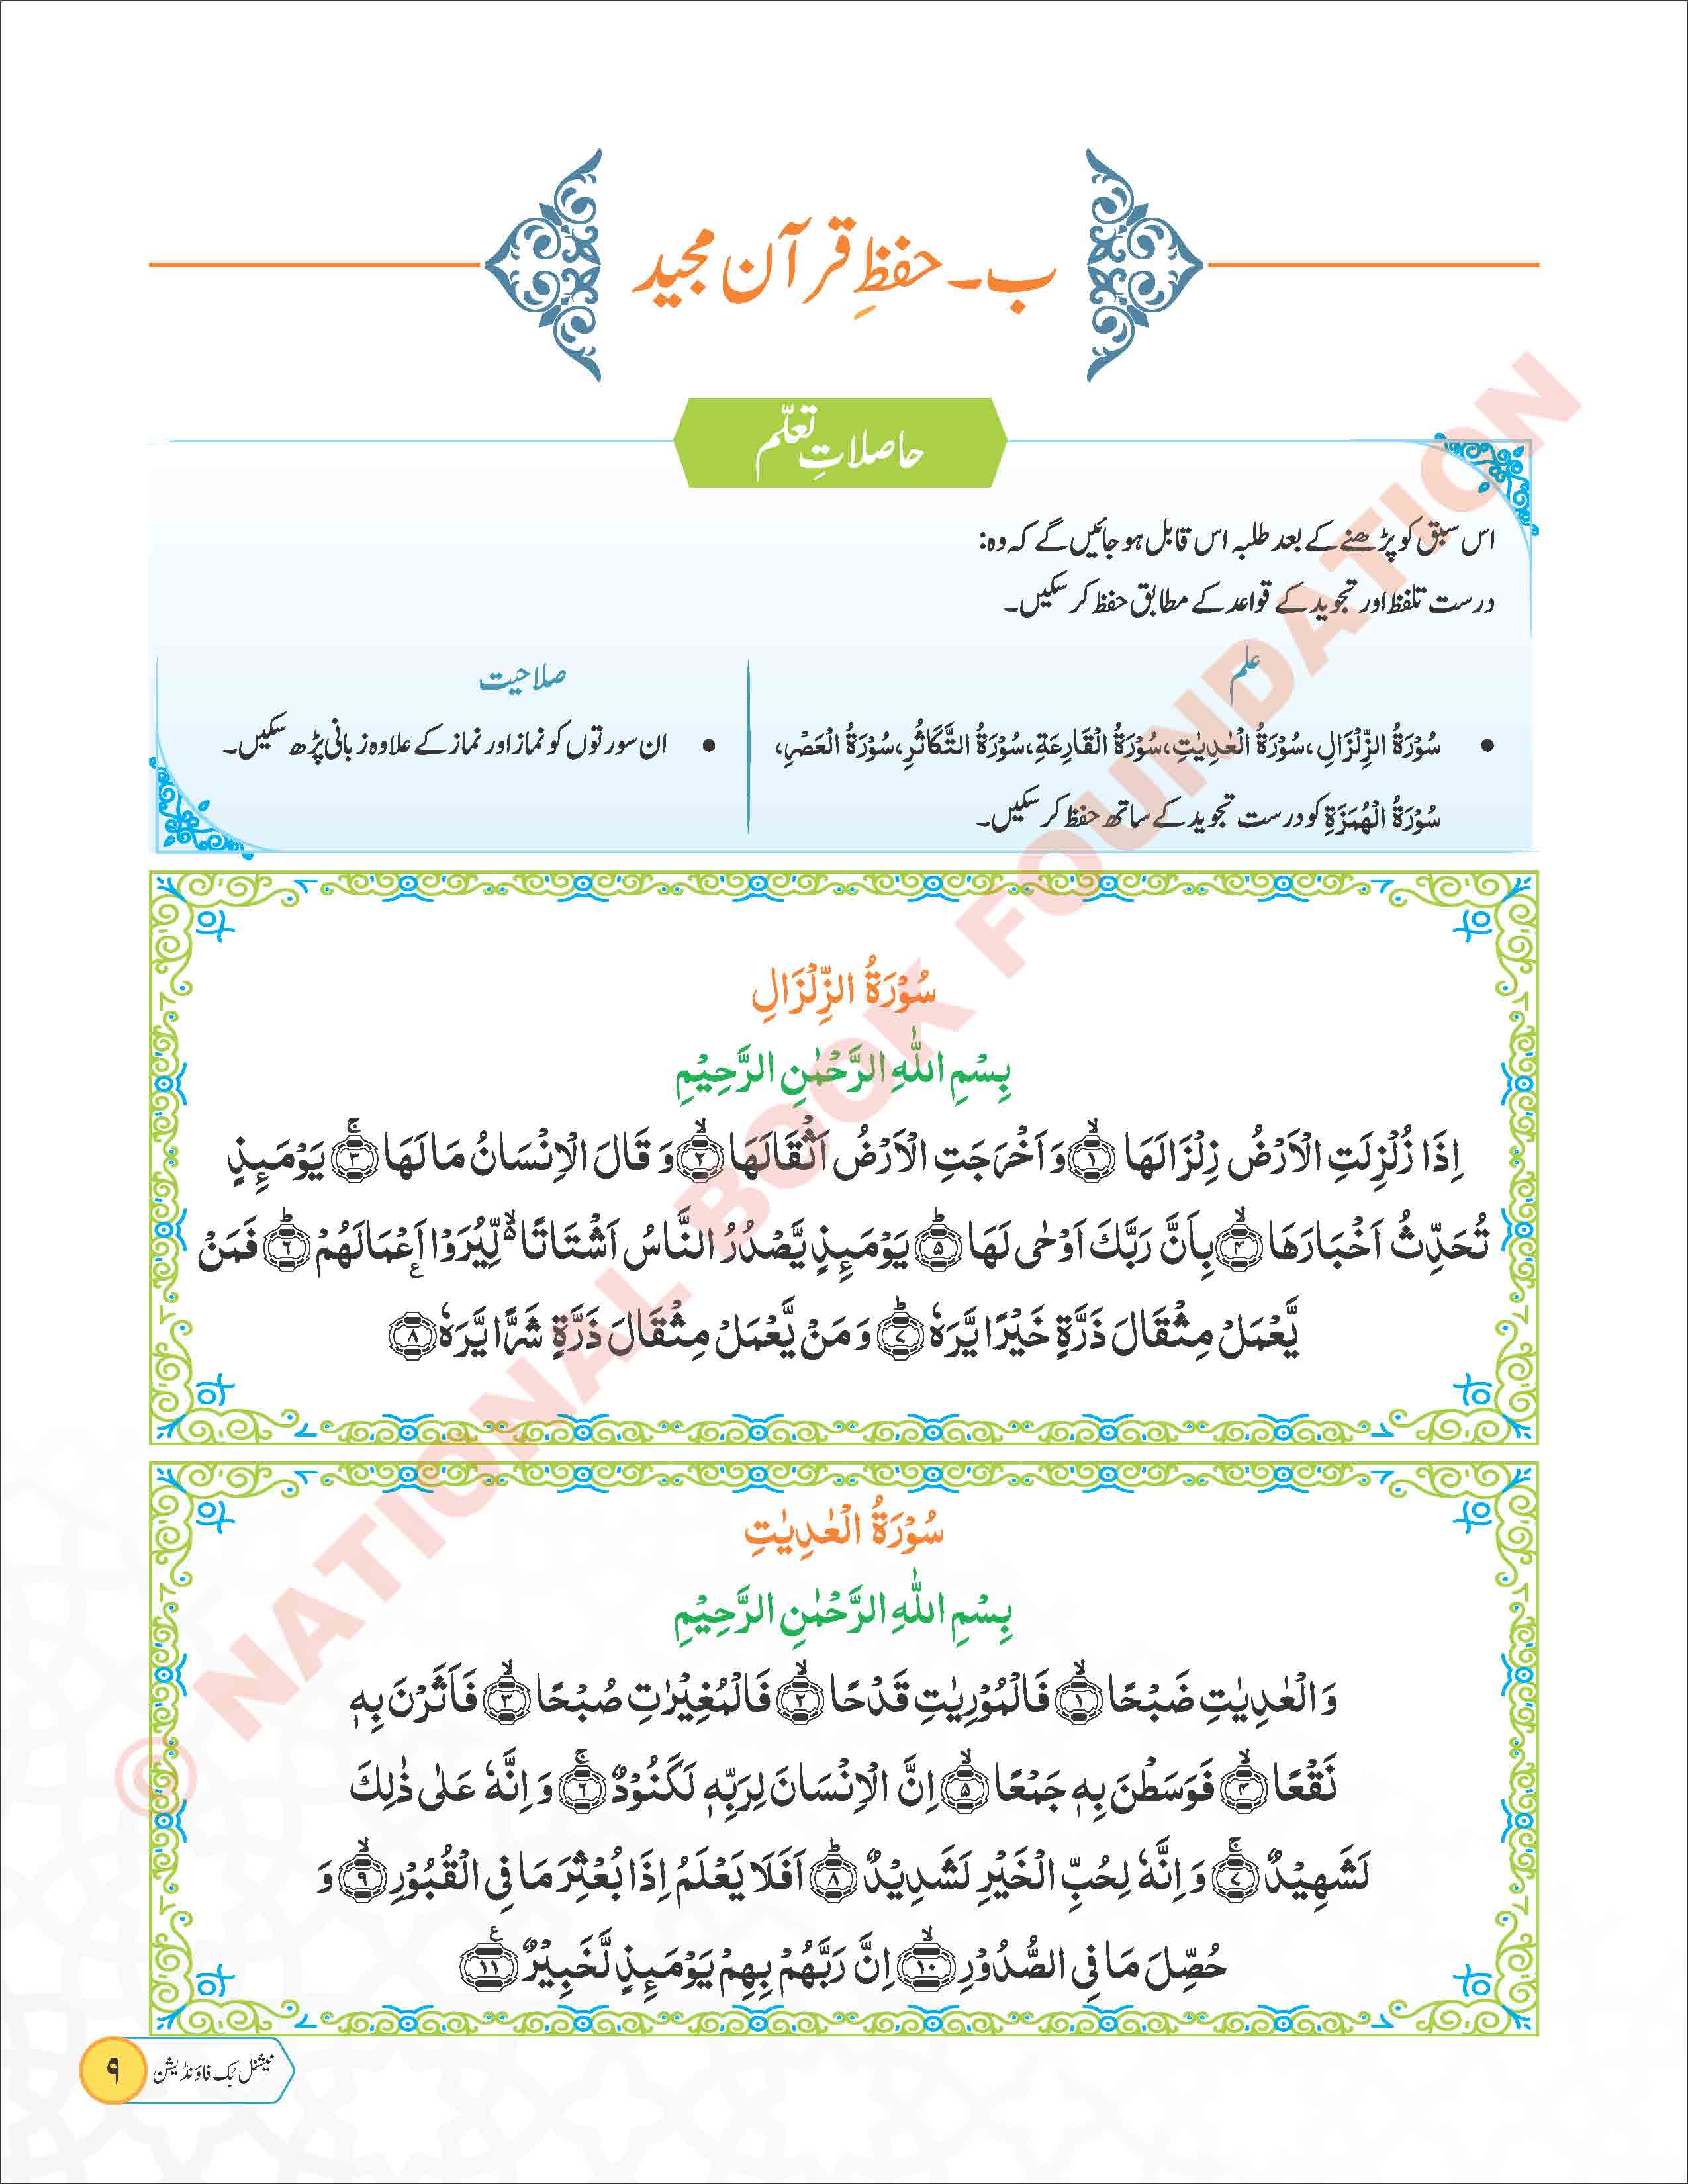 ب۔ حفظِ قرآن مجید
حاصلاتِ تعلّم
اس سبق کو پڑھنے کے بعد طلبہ اس قابل ہو جائیں گے کہ وہ:
درست تلفظ اور تجوید کے قواعد کے مطابق حفظ کر سکیں۔
علم
سُوْرَةُ الزِّلْزَالِ، سُوْرَةُ الْعٰدِیٰتِ، سُوْرَةُ الْقَارِعَةِ، سُوْرَةُ التَّكَاثُرِ، سُوْرَةُ الْعَصْرِ،
سُوْرَةُ الْهُمَزَةِ کو درست تجوید کے ساتھ حفظ کر سکیں۔
صلاحیت
ان سورتوں کو نماز اور نماز کے علاوہ زبانی پڑھ سکیں۔
سُوْرَةُ الزِّلْزَالِ
بِسْمِ اللّٰهِ الرَّحْمٰنِ الرَّحِیْمِ
اِذَا زُلْزِلَتِ الْاَرْضُ زِلْزَالَهَا ۙ﴿۱﴾ وَ اَخْرَجَتِ الْاَرْضُ اَثْقَالَهَا ۙ﴿۲﴾ وَ قَالَ الْاِنْسَانُ مَا لَهَا ۚ﴿۳﴾ یَوْمَىِٕذٍ
تُحَدِّثُ اَخْبَارَهَا ۙ﴿۴﴾ بِاَنَّ رَبَّكَ اَوْحٰی لَهَا ؕ﴿۵﴾ یَوْمَىِٕذٍ یَّصْدُرُ النَّاسُ اَشْتَاتًا ۙ۬ لِّیُرَوْا اَعْمَالَهُمْ ؕ﴿۶﴾ فَمَنْ
یَّعْمَلْ مِثْقَالَ ذَرَّةٍ خَیْرًا یَّرَهٗ ؕ﴿۷﴾ وَ مَنْ یَّعْمَلْ مِثْقَالَ ذَرَّةٍ شَرًّا یَّرَهٗ ﴿۸﴾
سُوْرَةُ الْعٰدِیٰتِ
بِسْمِ اللّٰهِ الرَّحْمٰنِ الرَّحِیْمِ
وَ الْعٰدِیٰتِ ضَبْحًا ۙ﴿۱﴾ فَالْمُوْرِیٰتِ قَدْحًا ۙ﴿۲﴾ فَالْمُغِیْرٰتِ صُبْحًا ۙ﴿۳﴾ فَاَثَرْنَ بِهٖ
نَقْعًا ۙ﴿۴﴾ فَوَسَطْنَ بِهٖ جَمْعًا ۙ﴿۵﴾ اِنَّ الْاِنْسَانَ لِرَبِّهٖ لَكَنُوْدٌ ۚ﴿۶﴾ وَ اِنَّهٗ عَلٰی ذٰلِكَ
لَشَهِیْدٌ ۚ﴿۷﴾ وَ اِنَّهٗ لِحُبِّ الْخَیْرِ لَشَدِیْدٌ ؕ﴿۸﴾ اَفَلَا یَعْلَمُ اِذَا بُعْثِرَ مَا فِی الْقُبُوْرِ ۙ﴿۹﴾ وَ
حُصِّلَ مَا فِی الصُّدُوْرِ ۙ﴿۱۰﴾ اِنَّ رَبَّهُمْ بِهِمْ یَوْمَىِٕذٍ لَّخَبِیْرٌ ﴿۱۱﴾
نیشنل بُک فاؤنڈیشن
۹
© NATIONAL BOOK FOUNDATION